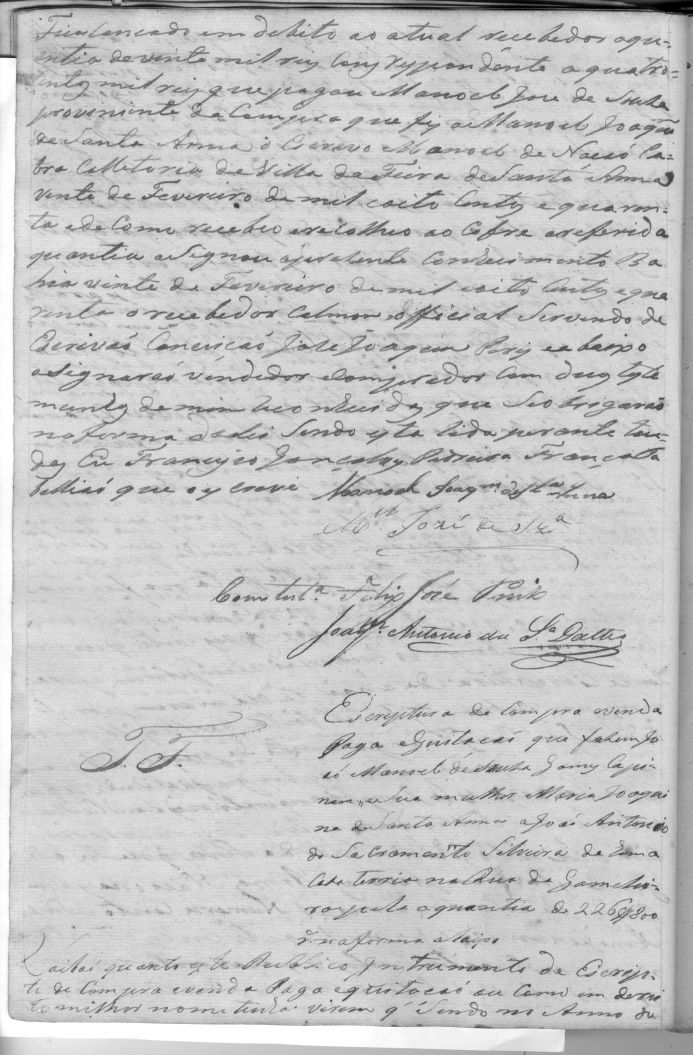 Fica lançado em debito ao atual recebedor a qu-
antia de vinte mil reis correspondente a quatro-
centos mil reis que pagou Manoel Jose de Souza
proveniente da Compra que fez a Manoel Joaqm
de Santa Anna o Escravo Manoel de Nação Ca-
bra Colletoria de Villa da Feira de Santa Anna
vinte de Fevereiro de mil e oito Centos e quaren-
ta e de Como recebeo e recolheo ao Cofre a referida
quantia asignou o prezente Conhecimento Ba
hia vinte de Fevereiro de mil e oito Centos e qua
renta o recebedor Calmon o official Servindo de
Escrivaó Conceicaó Jose Joaquim e abaixo
asignaraó vendedor e Comprador Com duas teste
munhas de mim reconhecidas que se obrigaraó
na forma da lei Sendo esta lida perante to-
dos Eu Francisco Gonçalves Pedreira França ta
belliaó que o escrevi Manoel Joaqm de Sta Anna
Mel José de Sza
Como testa Felix José
Joaqm Antonio da Sa Daltro
Escriptura de Compra e venda
Paga e Quitacaó que fazem Jo
aó Manoel de Souza Gomes
e Sua mulher Maria Joaqui
na de Santa Anna a João Antonio
do Sacramento Silveira de huma
Caza terria na Rua da Gamelei-
ra pela a quantia de 226$800
rs na forma abaixo
T. F.
Saibaó quanto este Publico Instrumento de Escrip-
ta de Compra e venda Paga e quitacaó ou Como em derei
to milhor nome tenha virem q' Sendo no Anno do